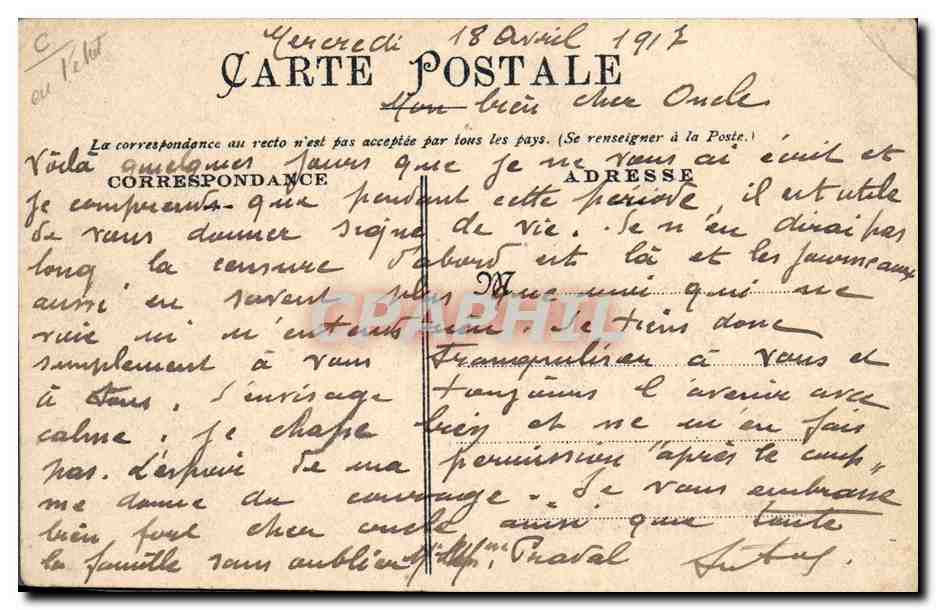 Mercredi 18 Avril 1917
CARTE POSTALE
Mon bien cher Oncle
La correspondance au recto n'est pas acceptée par tous les pays. (Se renseigner à la Poste.)
Voilà quelques jours que je ne vous ai écrit et
CORRESPONDANCE
ADRESSE
je comprends que pendant cette période, il est utile
de vous donner signe de vie. Je n'en dirai pas
long la censure d'abord est là et les journeaux
M
aussi en savent plus que moi qui ne
CPAPHIL
voie ni n'entends rien. Je tiens donc
simplement à vous tranquiliser à vous et
à tous. J'envisage toujours l'avenir avec
calme. Je chasse bien et ne m'en fais
pas. L'espoir de ma permission "après le coup"
me donne du courrage. Je vous embrasse
bien fort cher oncle ainsi que toute
la famille sans oublier Praval